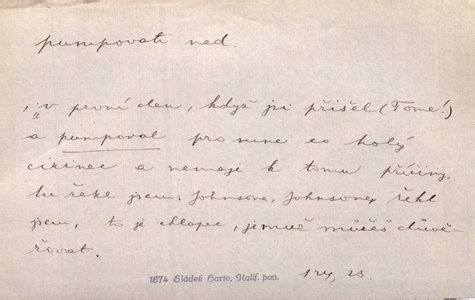 pumpovati ned.
"v první den, když jsi přišel (Tome!)
a pumpoval pro mne co holý
cizinec a nemaje k tomu příčiny
tu řekl jsem: Johnsone, Johnsone, řekl
jsem, to je chlapec, jemuž můžeš důvě
řovat.
1874 Sládek Harte, Kalif. pov.
124, 23.